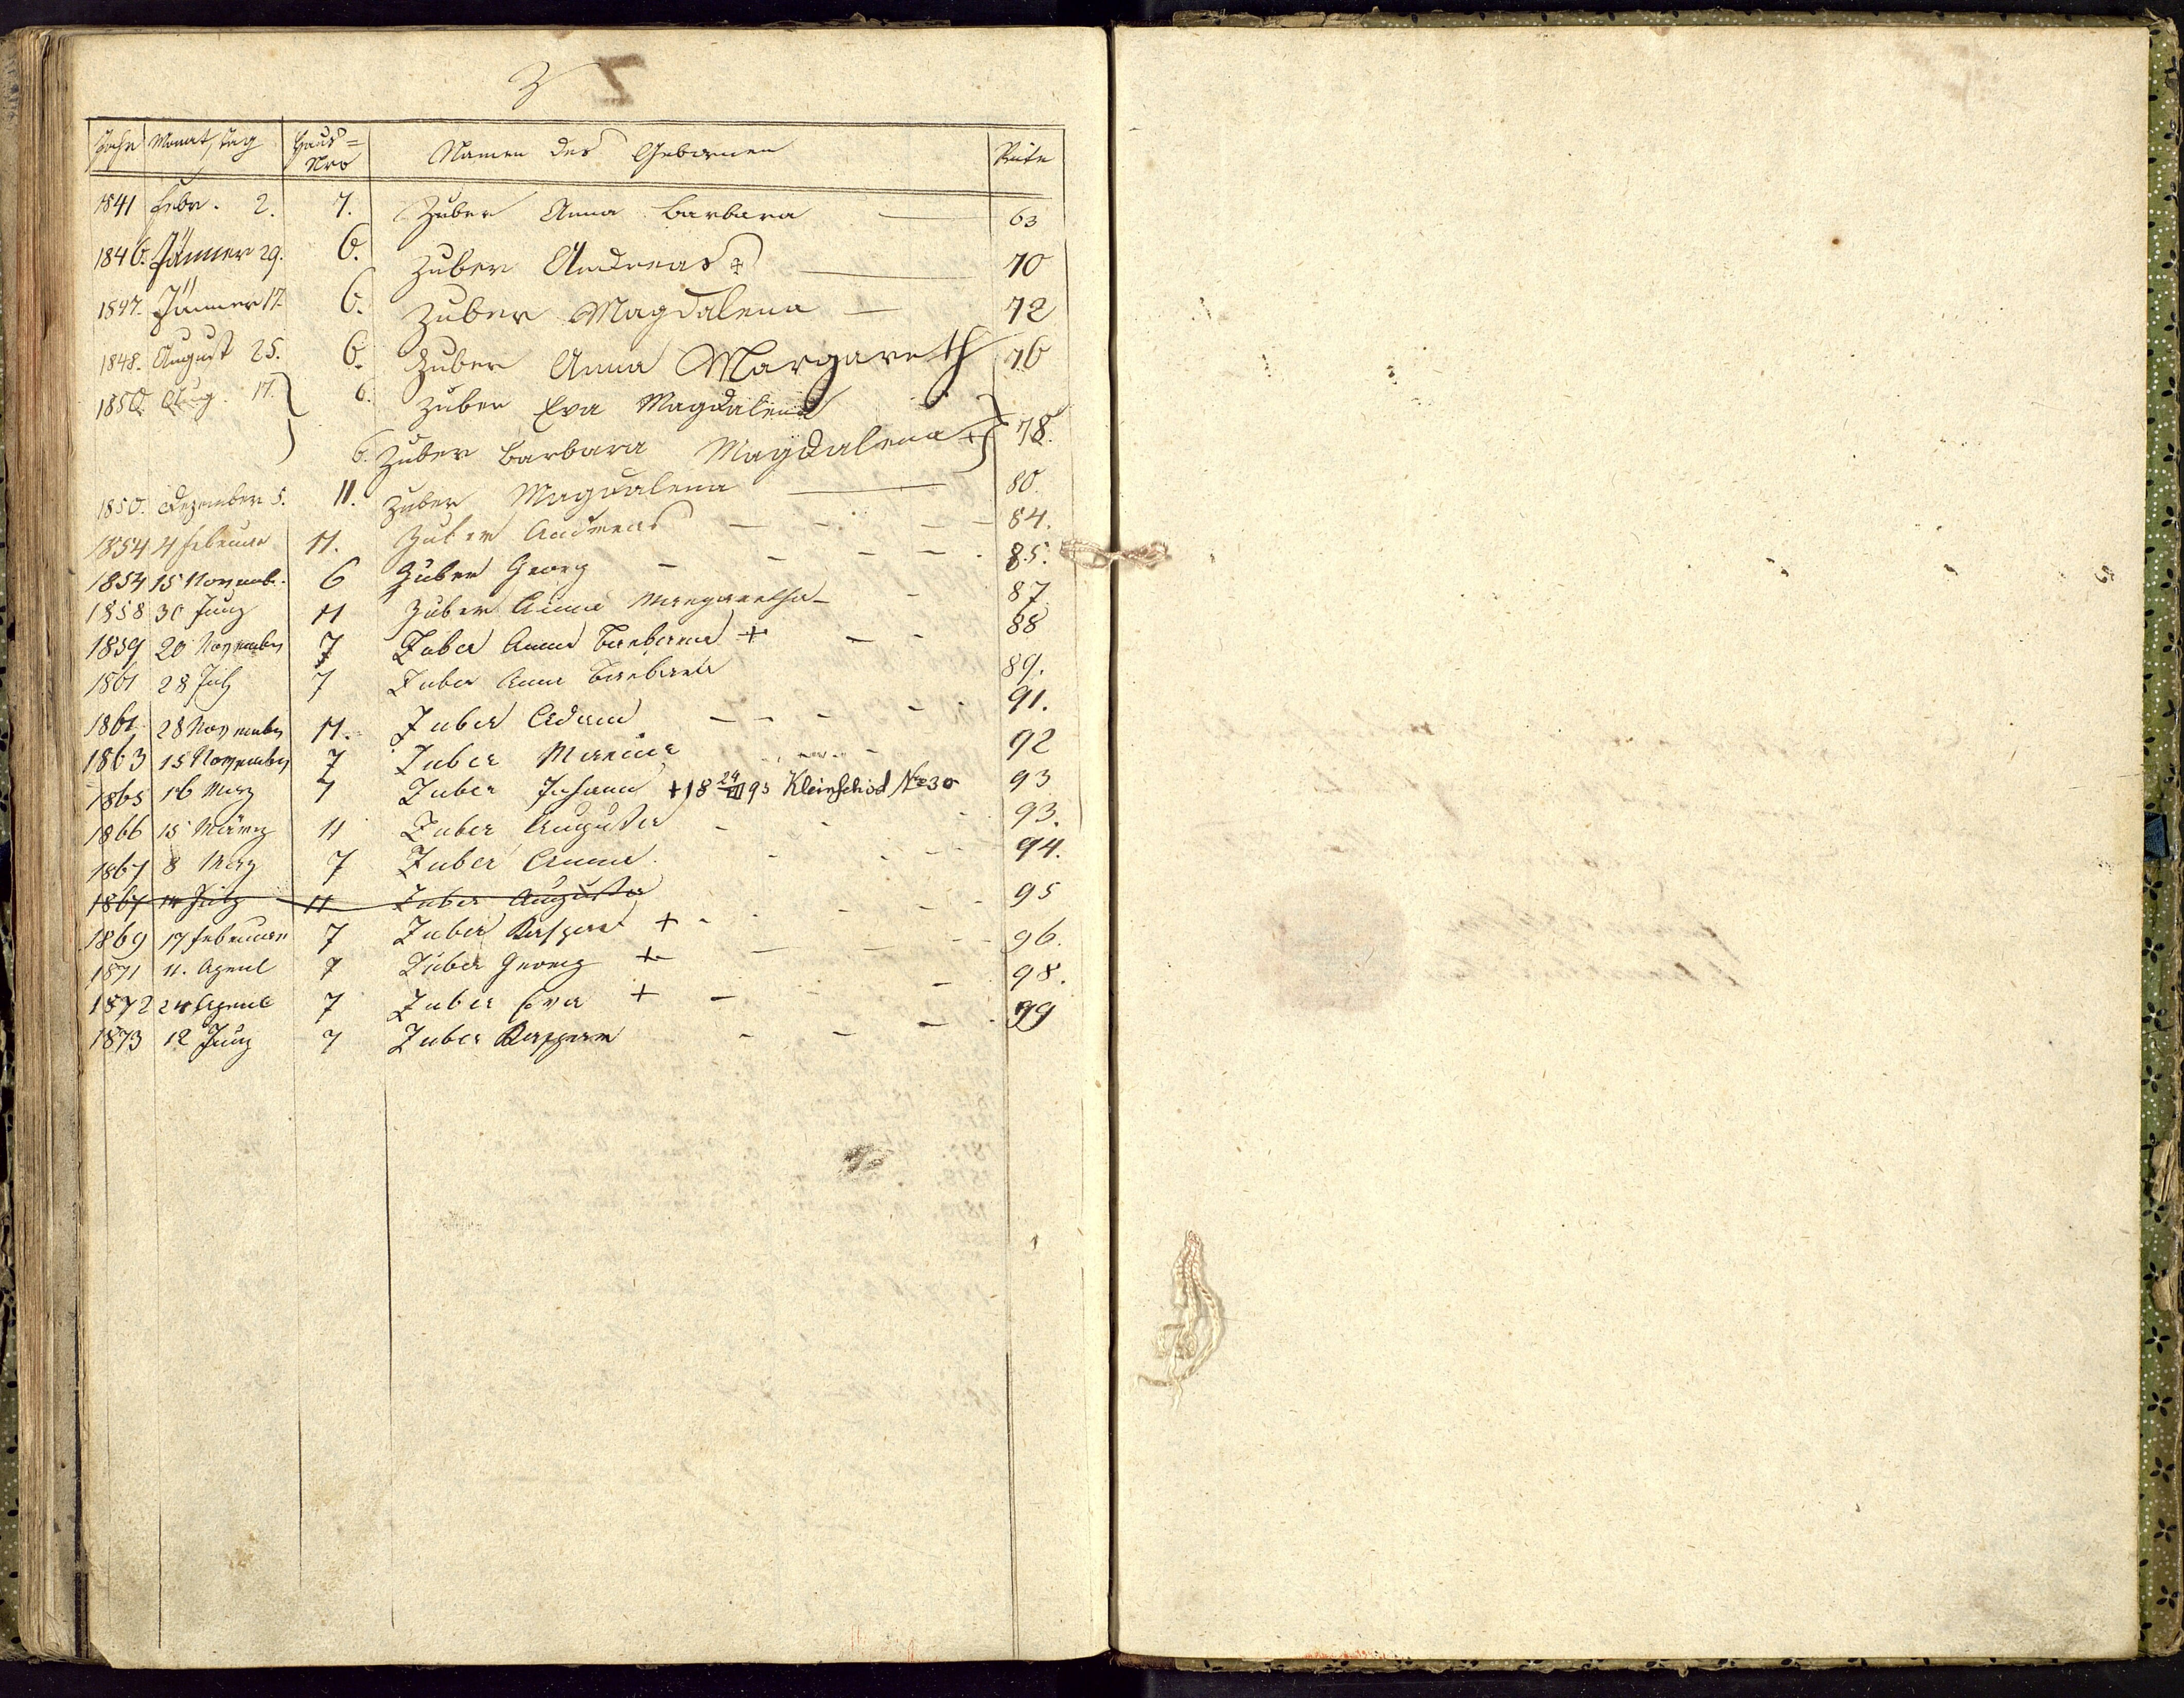 Z Z
Jahr Monat, Tag Haus= Nro Namen des Gebornen Seite
1841 Febr. 2. 7. Zuber Anna Barbara — 63
1846. Jänner 29. 6. Zuber Andreas + — 70
1847. Jänner 17. 6. Zuber Magdalena — 72
1848. August 25. 6. Zuber Anna Margareth 76
1850. Aug. 17. } 6. Zuber Eva Magdalena
6. Zuber Barbara Magdalena + } 78.
1850. Dezember 5. 11. Zuber Magdalena — 80.
1854 4 Februar 11. Zuber Andreas - - - - 84.
1854 15 Novemb. 6 Zuber Georg - - - - 85.
1858 30 Juny 11 Zuber Anna Margaretha - - 87
1859 20 November 7 Zuber Anna Barbara + - - 88
1861 28 July 7 Zuber Anna Barbara 89.
1861 28 November 11. Zuber Adam - - - - - 91.
1863 15 November 7 Zuber Maria - 92
1865 16 May 7 Zuber Johann +18 24/III 95 Kleinschöd No 30 93
1866 15 März 11 Zuber Augusta - - - 93.
1867 8 May 7 Zuber Anna - - - - 94.
1867 14 July 11 Zuber Augusta 95
1869 17 Februar 7 Zuber Kaspar + - - - - - 96.
1871 11. April 7 Zuber Georg + — - - - 98.
1872 24 April 7 Zuber Eva + - - 99
1873 12 Juny 7 Zuber Kaspar - - -